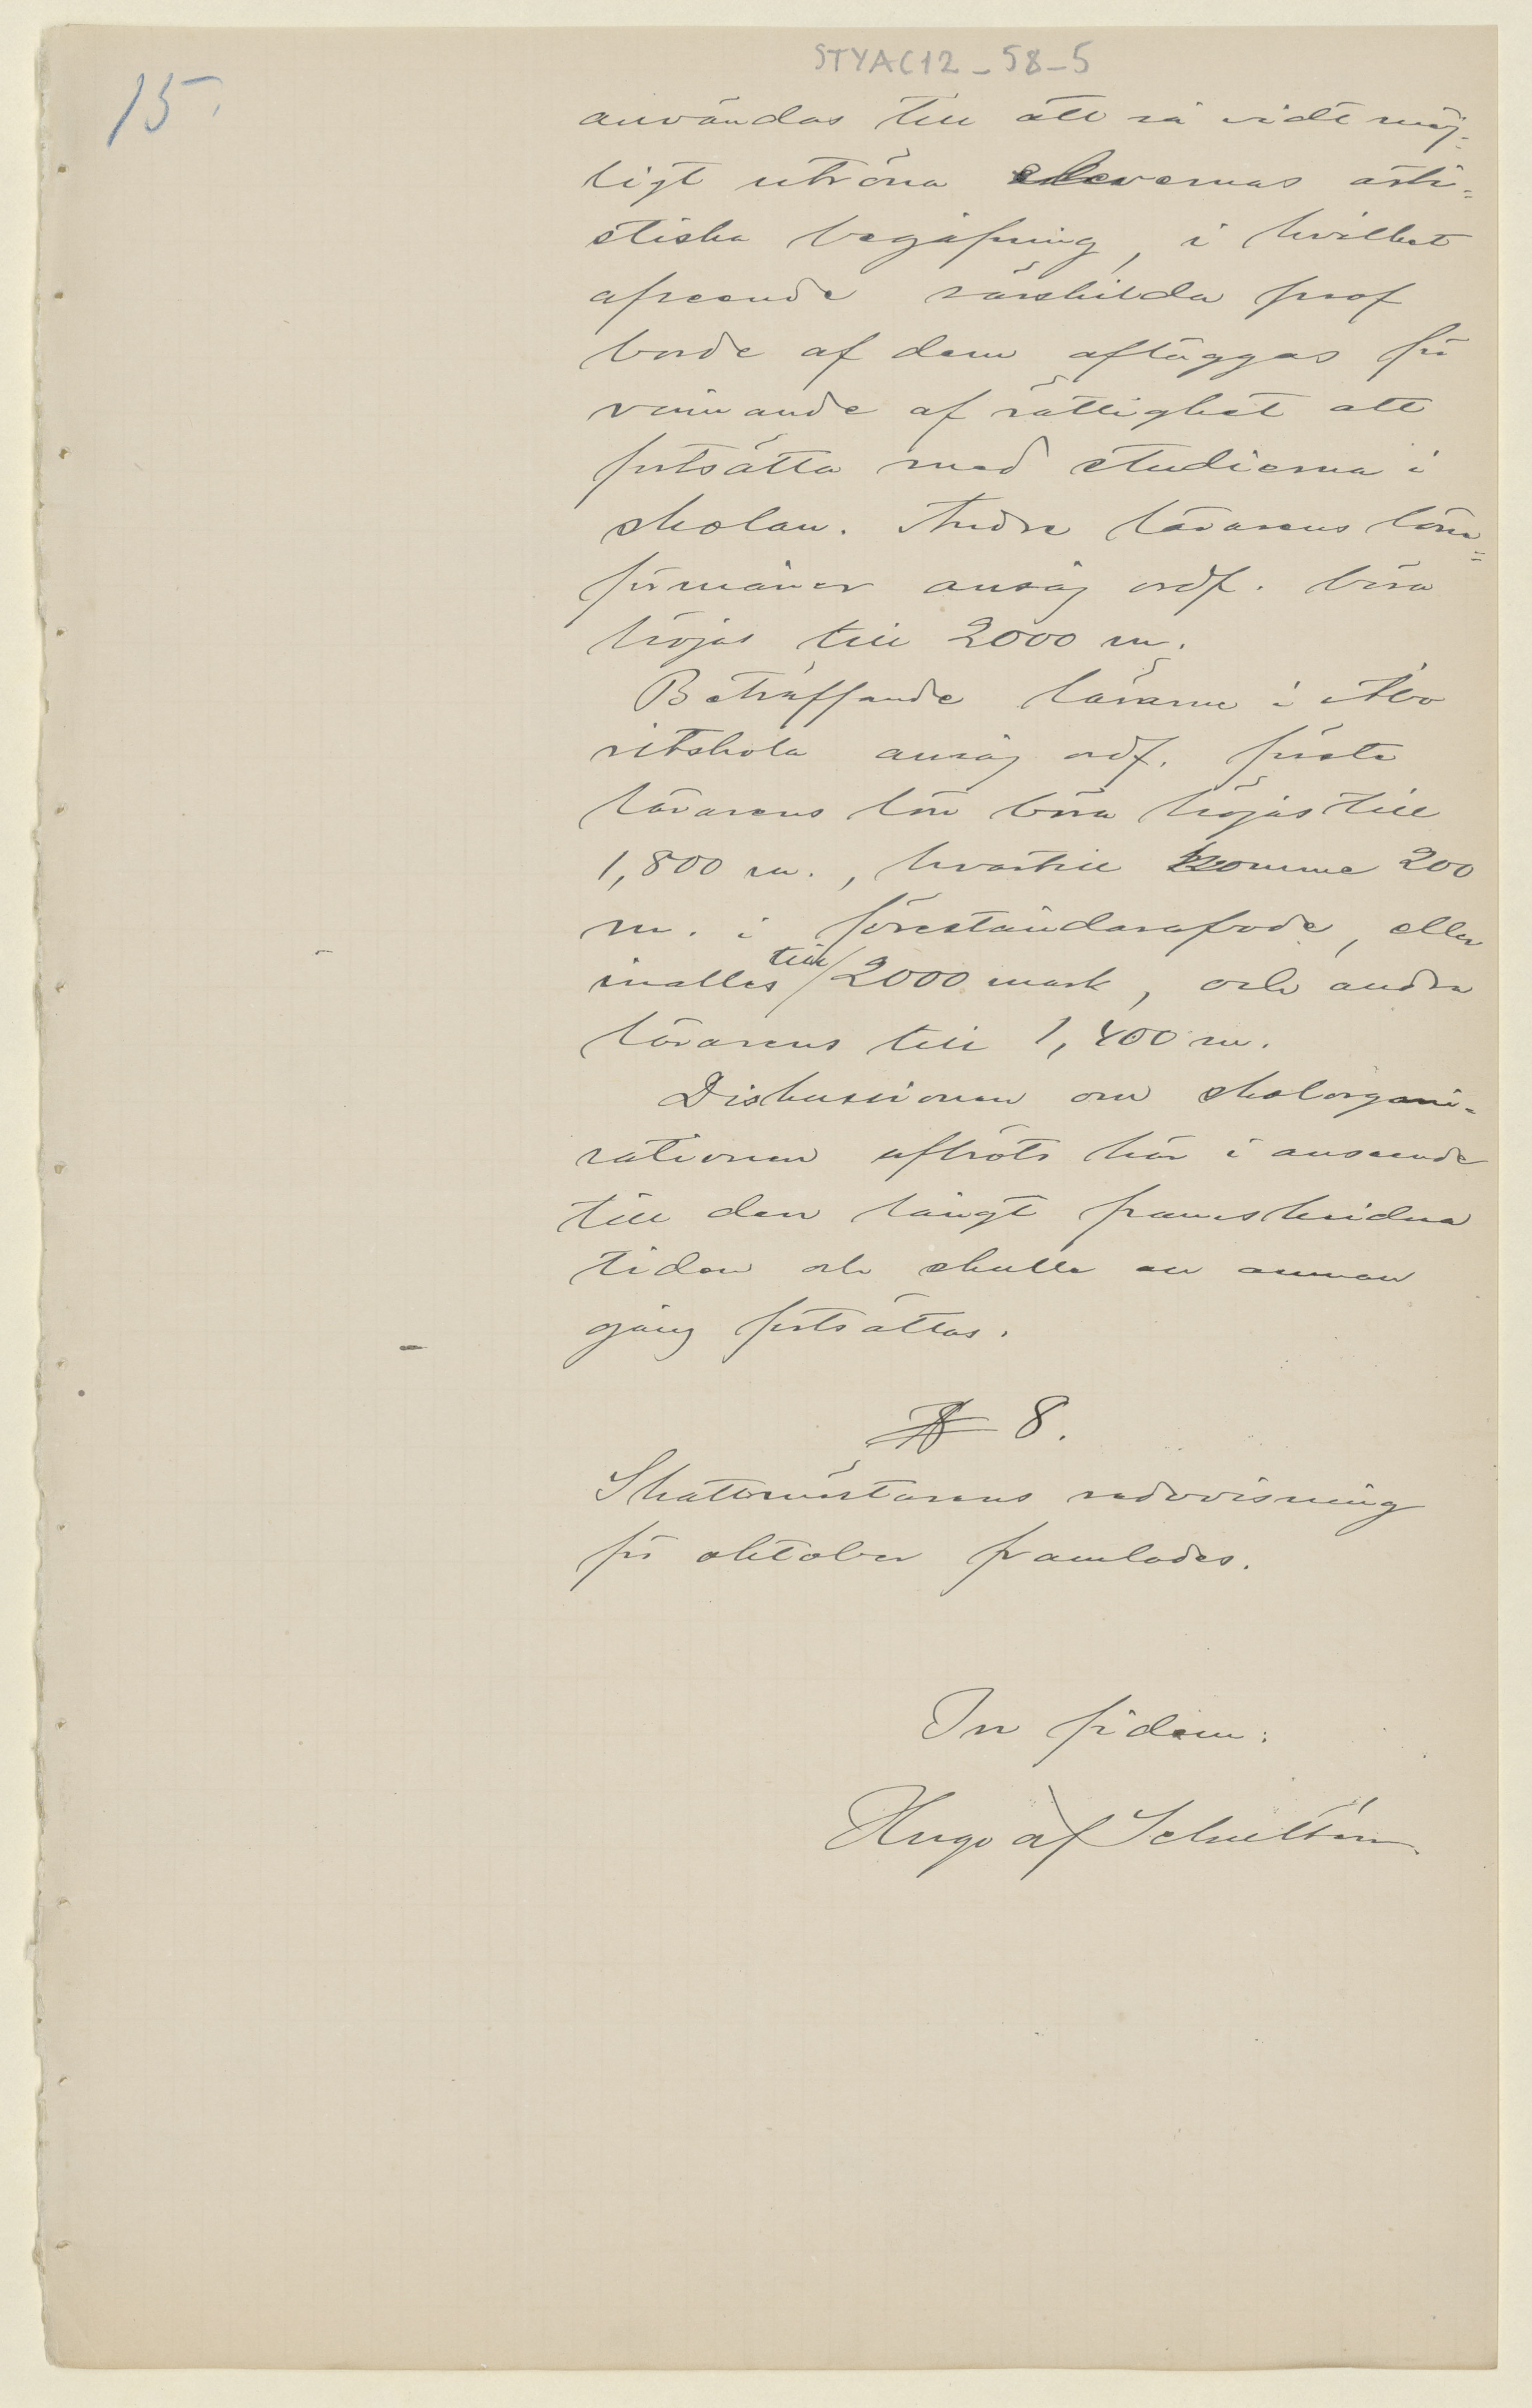 STYAC12_58_5
15.
användas till att så vidt möj-
ligt utröna elevernas arti=
stiska begåfning, i hvilket
afseende särskilda prof
borde af dem afläggas för
vinnande af rättighet att
fortsätta med studierna i
skolan. Andre lärarens löne=
förmåner ansåg ordf. böra
höjas till 2000 m.
Beträffande lärarne i Åbo
ritskola ansåg ordf. förste
lärarens lön böra höjas till
1,800 m., hvartill komme 200
m. i föreståndararfvode, eller
inalles till 2000 mark, och andra
lärarens till 1,400 m.
Diskussionen om skolorgani-
sationen afbröts här i anseende
till den långt framskridna
tiden och skulle en annan
gång fortsättas.
§ 8.
Skattmästarens redovisning
för oktober framlades.
In fidem:
Hugo af Schultén